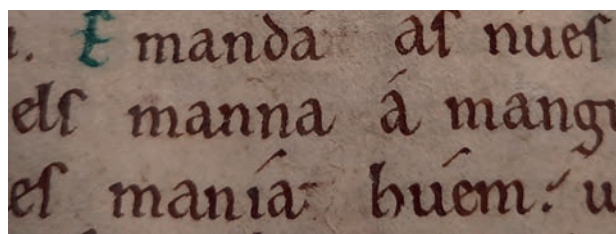 . E mandá aſ nueſ
elſ manna á mang
eſ manía: buém.